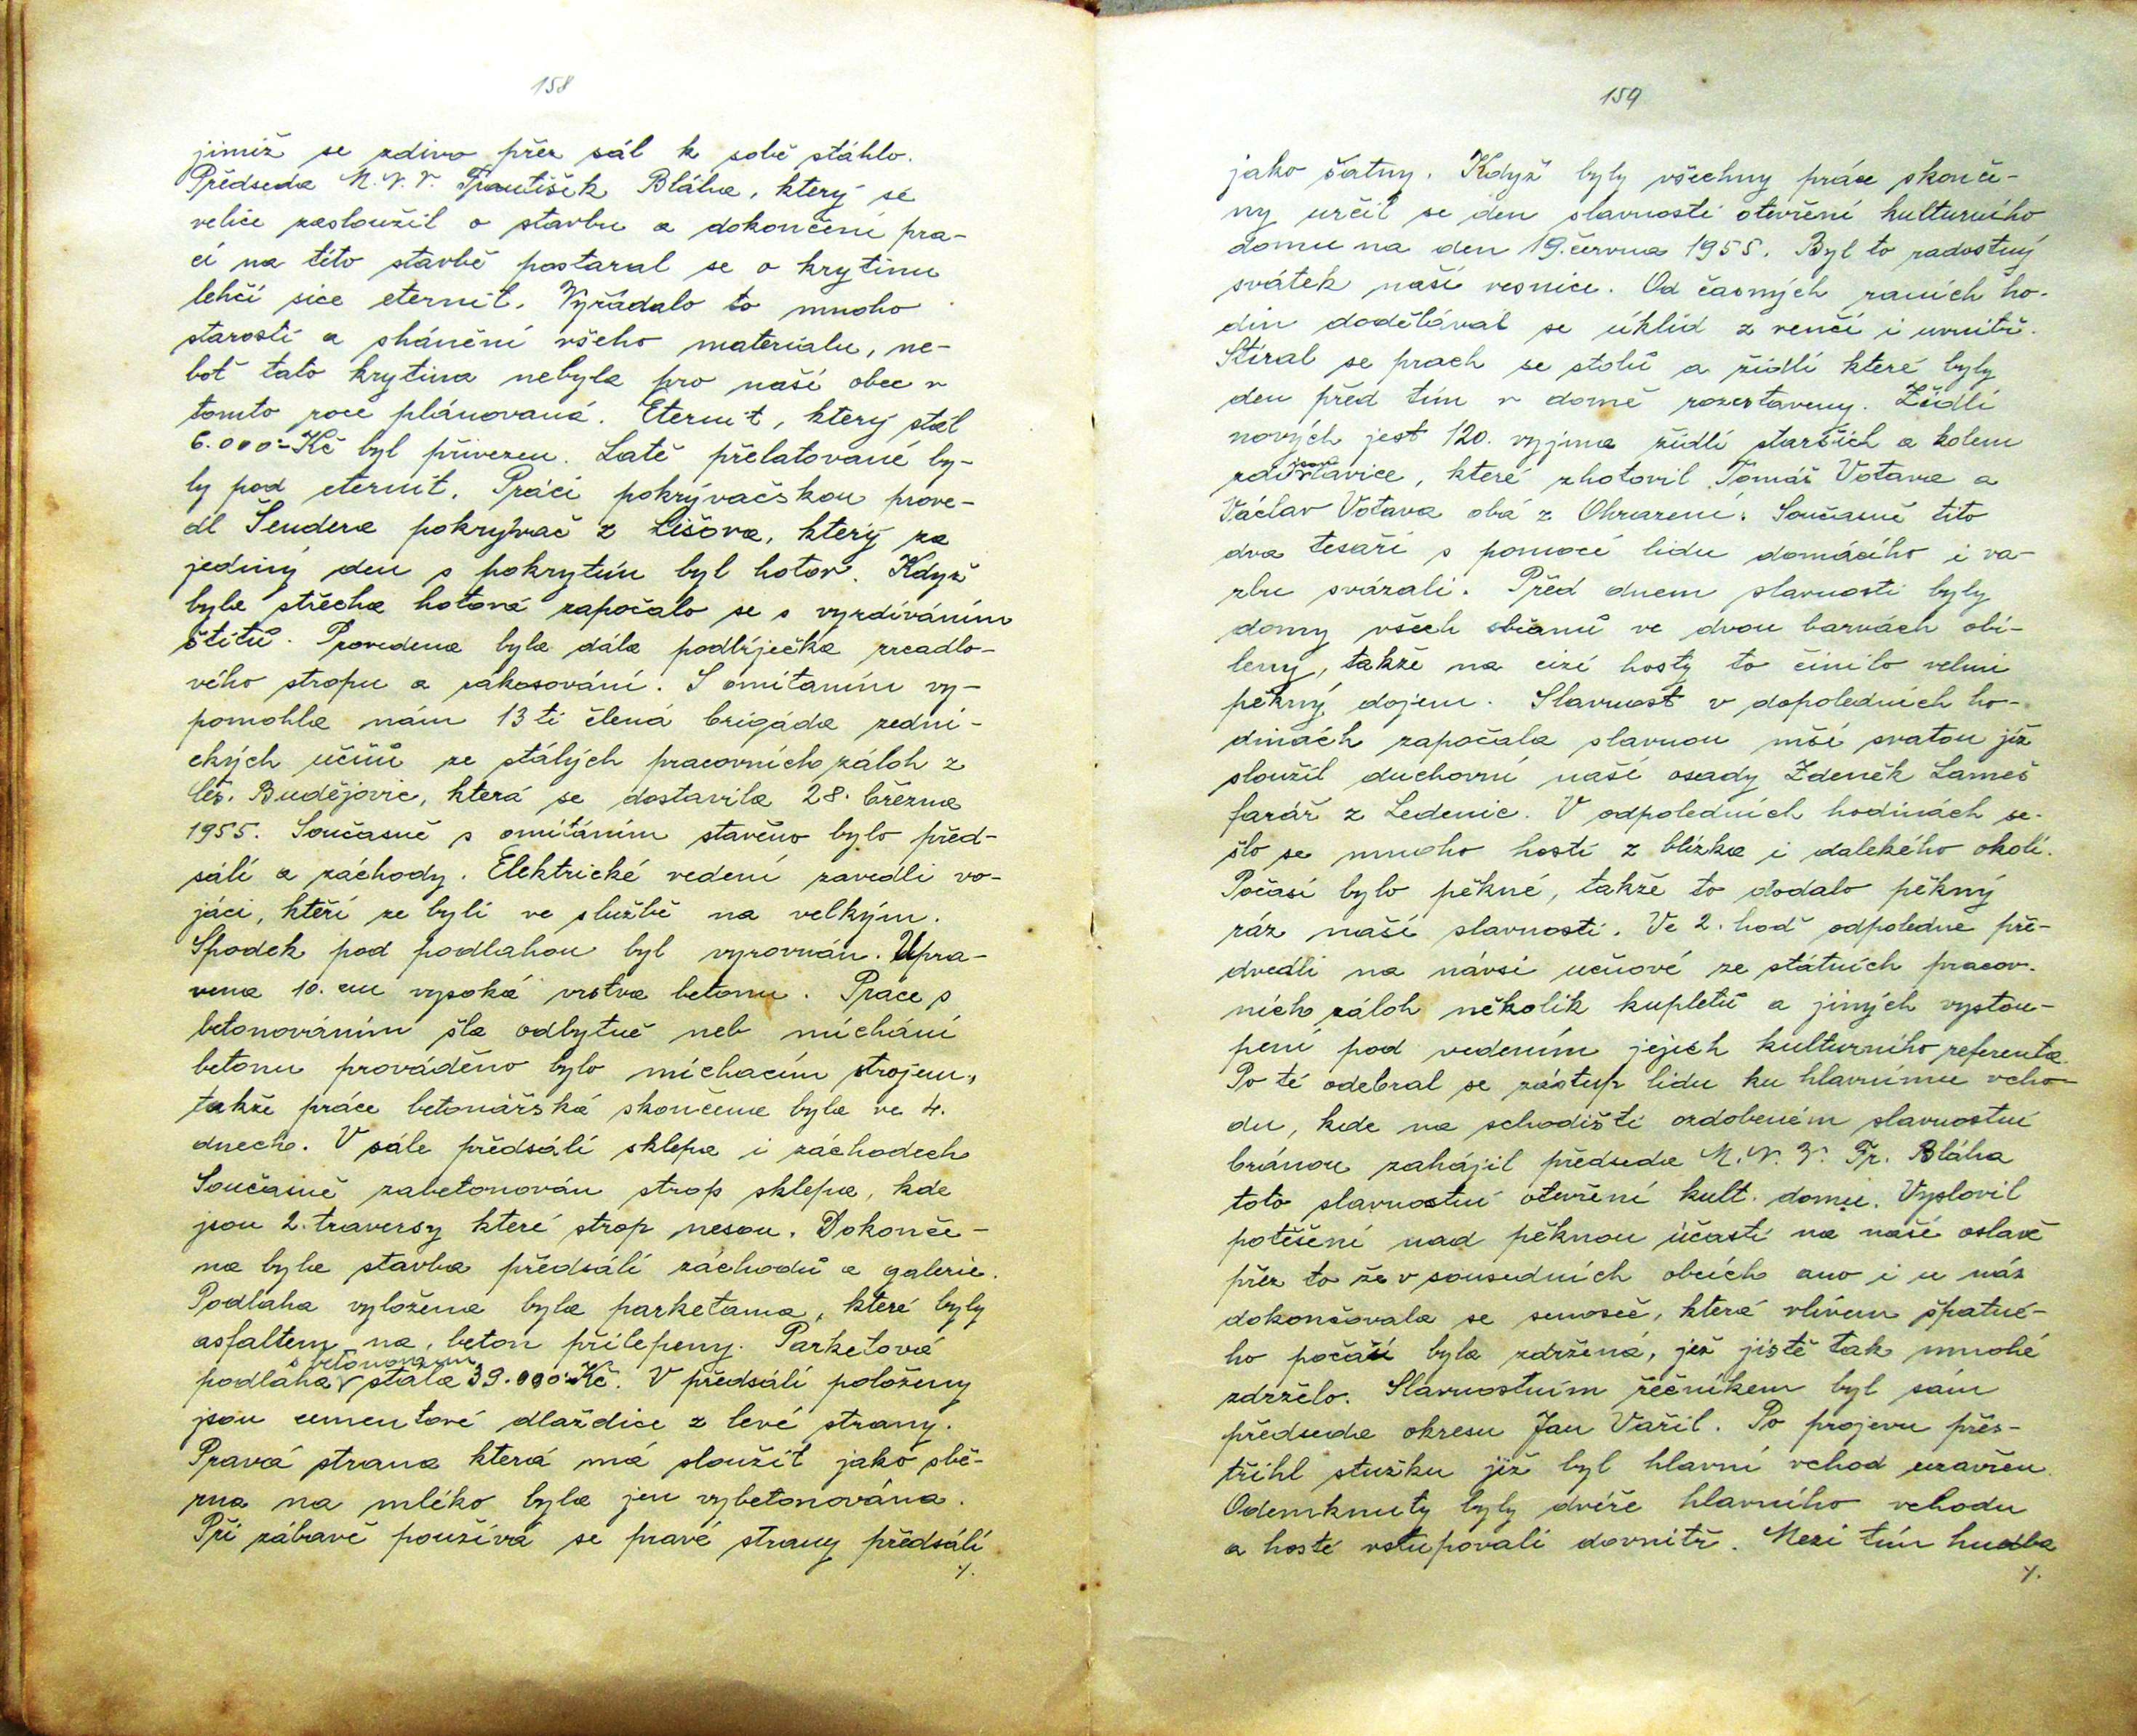 158
jimiž se zdivo přez sál k sobě stáhlo.
Předseda M.N.V. František Bláha, který se
velice zasloužil o stavbu a dokončení pra-
cí na této stavbě postaral se o krytinu
lehčí sice eternit. Vyžádalo to mnoho
starostí a shánění všeho materialu, ne-
boť tato krytina nebyla pro naší obec v
tomto roce plánovaná. Eternit, který stál
6.000 Kč byl přivezen. Latě přelatované by-
ly pod eternit. Práci pokrývačskou prove-
dl Šendera pokrývač z Lišova, který za
jediný den s pokrytím byl hotov. Když
byla střecha hotová započalo se s vyzdíváním
štítů. Provedena byla dále podbíječka zrcadlo-
vého stropu a rakosování. S omítaním vy-
pomohla nám 13ti člená brigáda zedni-
ckých učňů ze stálých pracovních záloh z
Čes. Budějovic, která se dostavila 28. března
1955. Současně s omítáním stavěno bylo před-
sálí a záchody. Elektrické vedení zavedli vo-
jáci, kteří ze byli ve službě na velkým.
Spodek pod podlahou byl vyrovnán. Upra-
vena 10. cm vysoká vrstva betonu. Prace s
betonováním šla odbytně neb míchání
betonu prováděno bylo míchacím strojem,
takže práce betonářská skončena byla ve 4.
dnech. V sále předsálí sklepa i záchodech
Současně zabetonován strop sklepa, kde
jsou 2. traversy které strop nesou. Dokonče-
na byla stavba předsálí záchodů a galerie.
Podlaha vyložena byla parketama, které byly
asfaltem na beton přilepeny. Parketová
s betonovaním
podlaha stála 39.000 Kč. V předsálí položeny
jsou cementové dlaždice z levé strany.
Pravá strana která má sloužit jako sbě-
rna na mléko byla jen vybetonována.
Při zábavě používá se pravé strany předsálí
./.
159
jako šatny. Když byly všechny práce skonče-
ny určil se den slavnosti otevření kulturního
domu na den 19. června 1955. Byl to radostný
svátek naší vesnice. Od časných raních ho-
din dodělával se úklid z venčí i uvnitř.
Stíral se prach se stolů a židlí které byly
den před tím v domě rozestaveny. Židlí
nových jest 120. vyjma židlí starších a kolem
jsou
zdi lavice, které zhotovil Tomáš Votava a
Václav Votava obá z Ohrazení. Současně tito
dva tesaři s pomocí lidu domácího i va-
zbu svázali. Před dnem slavnosti byly
domy všech občanů ve dvou barvách obí-
leny, takže na cizí hosty to činilo velmi
pěkný dojem. Slavnost v dopoledních ho-
dinách započala slavnou mší svatou jíž
sloužil duchovní naší osady Zdeněk Lameš
farář z Ledenic. V odpoledních hodinách se-
šlo se mnoho hostí z blízka i dalekého okolí.
Počasí bylo pěkné, takže to dodalo pěkný
ráz naší slavnosti. Ve 2. hoď odpoledne pře-
dvedli na návsi učňové ze státních pracov-
ních záloh několik kupletů a jiných vystou-
pení pod vedením jejich kulturního referenta.
Po té odebral se zástup lidu ku hlavnímu vcho-
du, kde na schodišti ozdobeném slavnostní
bránou zahájil předseda M.N.V. Fr. Bláha
toto slavnostní otevření kult. domu. Vyslovil
potěšení nad pěknou účastí na naší oslavě
přez to že v sousedních obcích ano i u nás
dokončovala se senoseč, která vlivem špatné-
ho počasí byla zdržená, jež jistě tak mnohé
zdrželo. Slavnostním řečníkem byl sám
předseda okresu Jan Vařil. Po projevu přes-
třihl stužku jíž byl hlavní vchod uzavřen.
Odemknuty byly dvéře hlavního vchodu
a hosté vstupovali dovnitř. Mezi tím hudba
./.